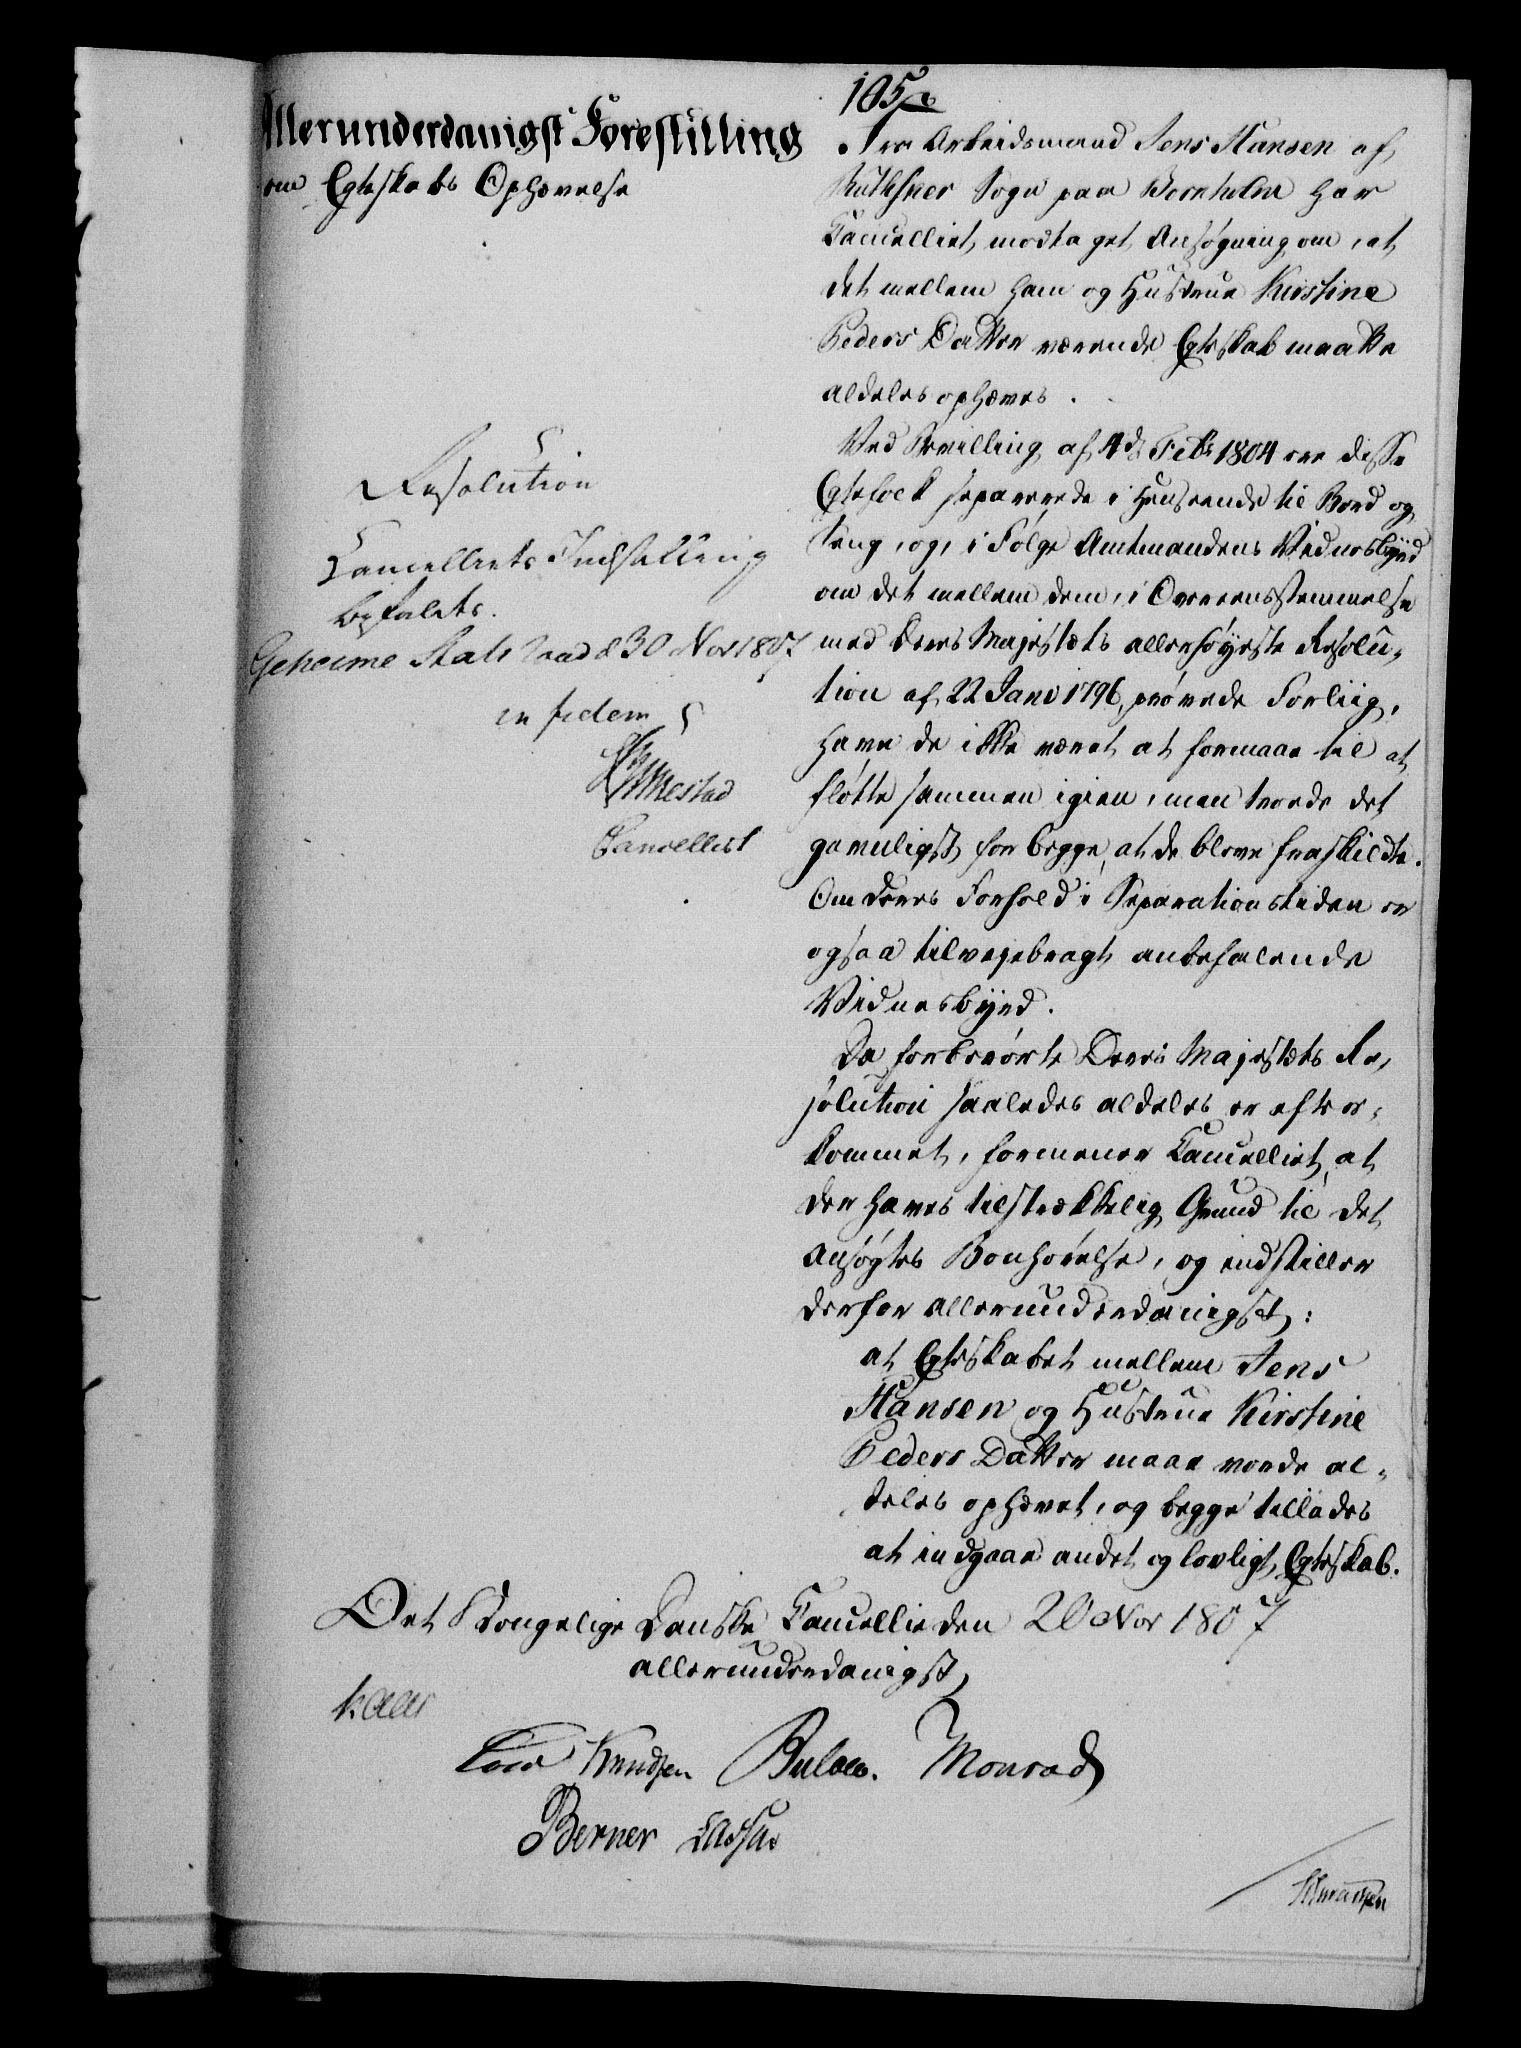 105
Allerunderdanigst Forestilling
om Egteskabs Ophævelse
Fra Arbeidsmand Jens Hansen af
Ruthsker Sogn paa Bornholm har
Cancelliet modtaget Ansøgning om, at
det mellem ham og Hustrue Kirstine
Peders Datter værende Egteskab maatte
aldeles ophæves.
Ved Bevilling af 4de Febr 1804 ere disse
Egtefolk separerede i Henseende til Bord og
Seng, og, i Følge Amtmandens Vidnesbyrd
om det mellem dem, i Overeensstemmelse
med Deres Majestæts allerhøyeste Resolu-
tion af 22 Janv 1796, prøvede Forliig,
have de ikke været at formaae til at
fløtte sammen igien, men troede det
gavnligst for begge, at de bleve fraskildte.
Om deres Forhold i Separationstiden er
ogsaa tilvejebragt anbefalende
Vidnesbyrd.
Da forberørte Deres Majestæts Re-
solution saaledes aldeles er efter-
kommet, formener Cancelliet, at
der haves tilstrækkelig Grund til det
Ansøgtes Bønhørelse, og indstiller
derfor allerunderdanigst:
at Egteskabet mellem Jens
Hansen og Hustrue Kirstine
Peders Datter maae vorde al-
deles ophævet, og begge tillades
at indgaae andet og lovligt Egteskab.
Resolution
Cancelliets Indstilling
bifaldes.
Geheime Stats Raad d 30 Nov 1807
in fidem
Cancellist
Det Kongelige Danske Cancellie den 20 Nov 1807
allerunderdanigst
Kaas
Cold Knudsen Bülow. Monrad
Berner Lassen